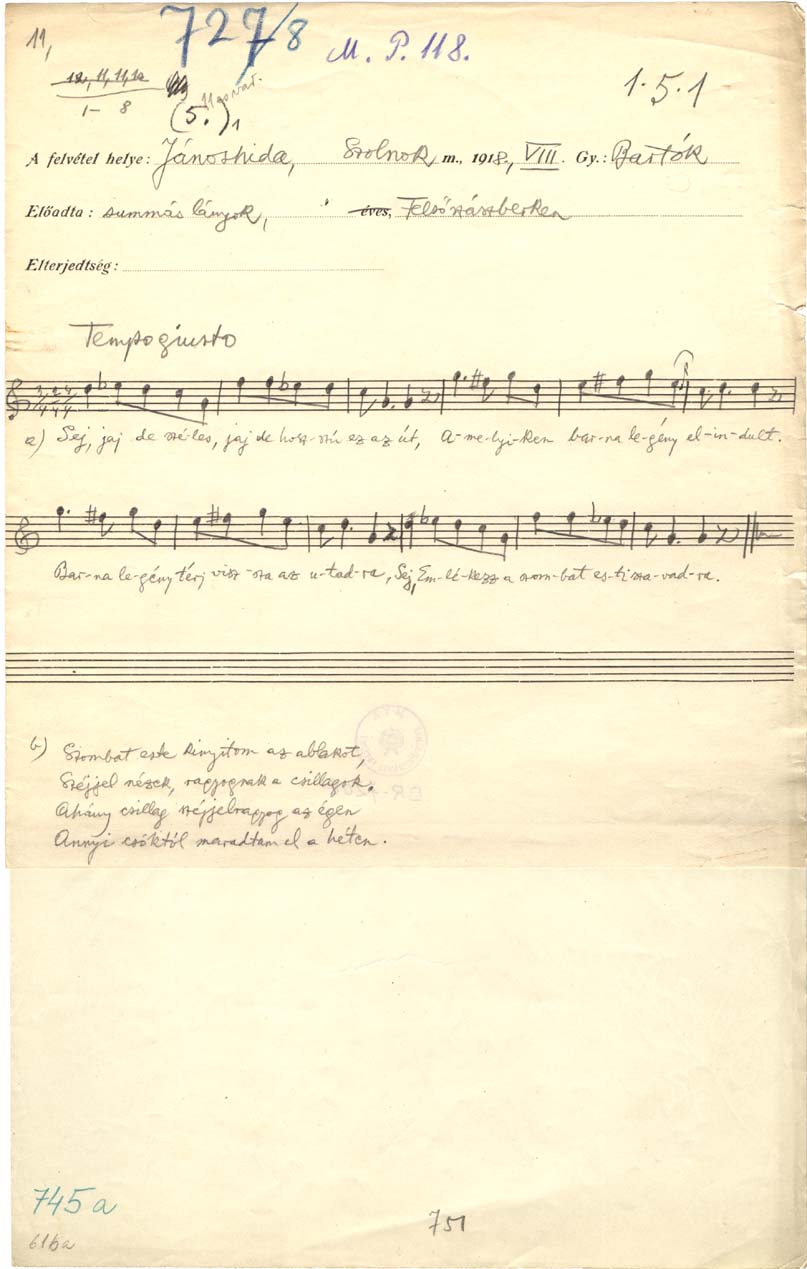 11,
727/8
M. P. 118.
12, 11, 11, 12
1- 8
(5.)1
1.5.1
A felvétel helye: Jánoshida, Szolnok m., 1918., VIII. Gy.: Bartók
Előadta: summás lányok, éves, Felsőszászberken
Elterjedtség:
Tempo giusto
3/4 2/4 4/4
a) Sej, jaj de szé-les, jaj de hosz-szú ez az út, A-me-lyi-ken bar-na le-gény el-in-dult.
Bar-na le-gény térj visz-sza az u-tad-ra, Sej, Em-lé-kezz a szom-bat es-ti sza-vad-ra.
b) Szombat este kinyitom az ablakot,
Széjjel nézek, ragyognak a csillagok.
Ahány csillag széjjelragyog az égen
Annyi csóktól maradtam el a héten.
745a
751